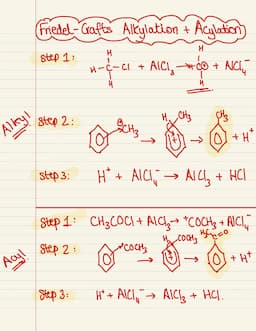 Friedel-Crafts Alkylation + Acylation
Step 1:
H
H-C-Cl + AlCl₃ → H-C⊕ + AlCl₄⁻
H
H
H
Alkyl
Step 2:
⊕CH₃
H CH₃
CH₃
→ → + H⁺
Step 3: H⁺ + AlCl₄⁻ → AlCl₃ + HCl
Acyl
Step 1: CH₃COCl + AlCl₃ → ⁺COCH₃ + AlCl₄⁻
Step 2:
⁺COCH₃
H COCH₃
H₃C-C=O
→ → + H⁺
Step 3: H⁺ + AlCl₄⁻ → AlCl₃ + HCl.